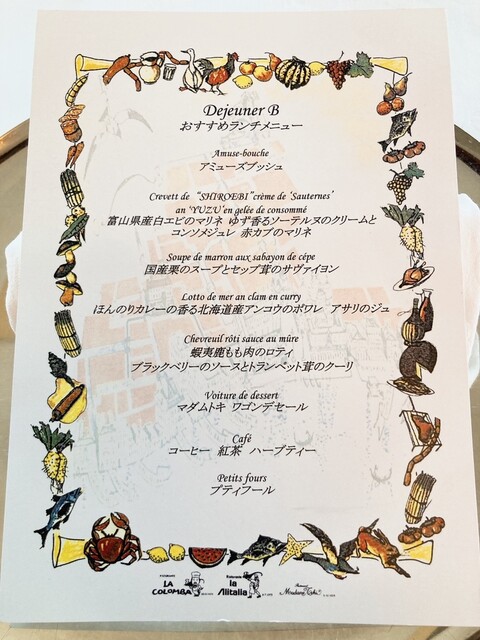 Dejeuner B
おすすめランチメニュー
Amuse-bouche
アミューズブッシュ
Crevett de "SHIROEBI" crème de 'Sauternes'
an 'YUZU' en gelée de consommé
富山県産白エビのマリネ ゆず香るソーテルヌのクリームと
コンソメジュレ 赤カブのマリネ
Soupe de marron aux sabayon de cépe
国産栗のスープとセップ茸のサヴァイヨン
Lotto de mer an clam en curry
ほんのりカレーの香る北海道産アンコウのポワレ アサリのジュ
Chevreuil rôti sauce au mûre
蝦夷鹿もも肉のロティ
ブラックベリーのソースとトランペット茸のクーリ
Voiture de dessert
マダムトキ ワゴンデセール
Café
コーヒー 紅茶 ハーブティー
Petits fours
プティフール
LA COLOMBA
la Alitalia